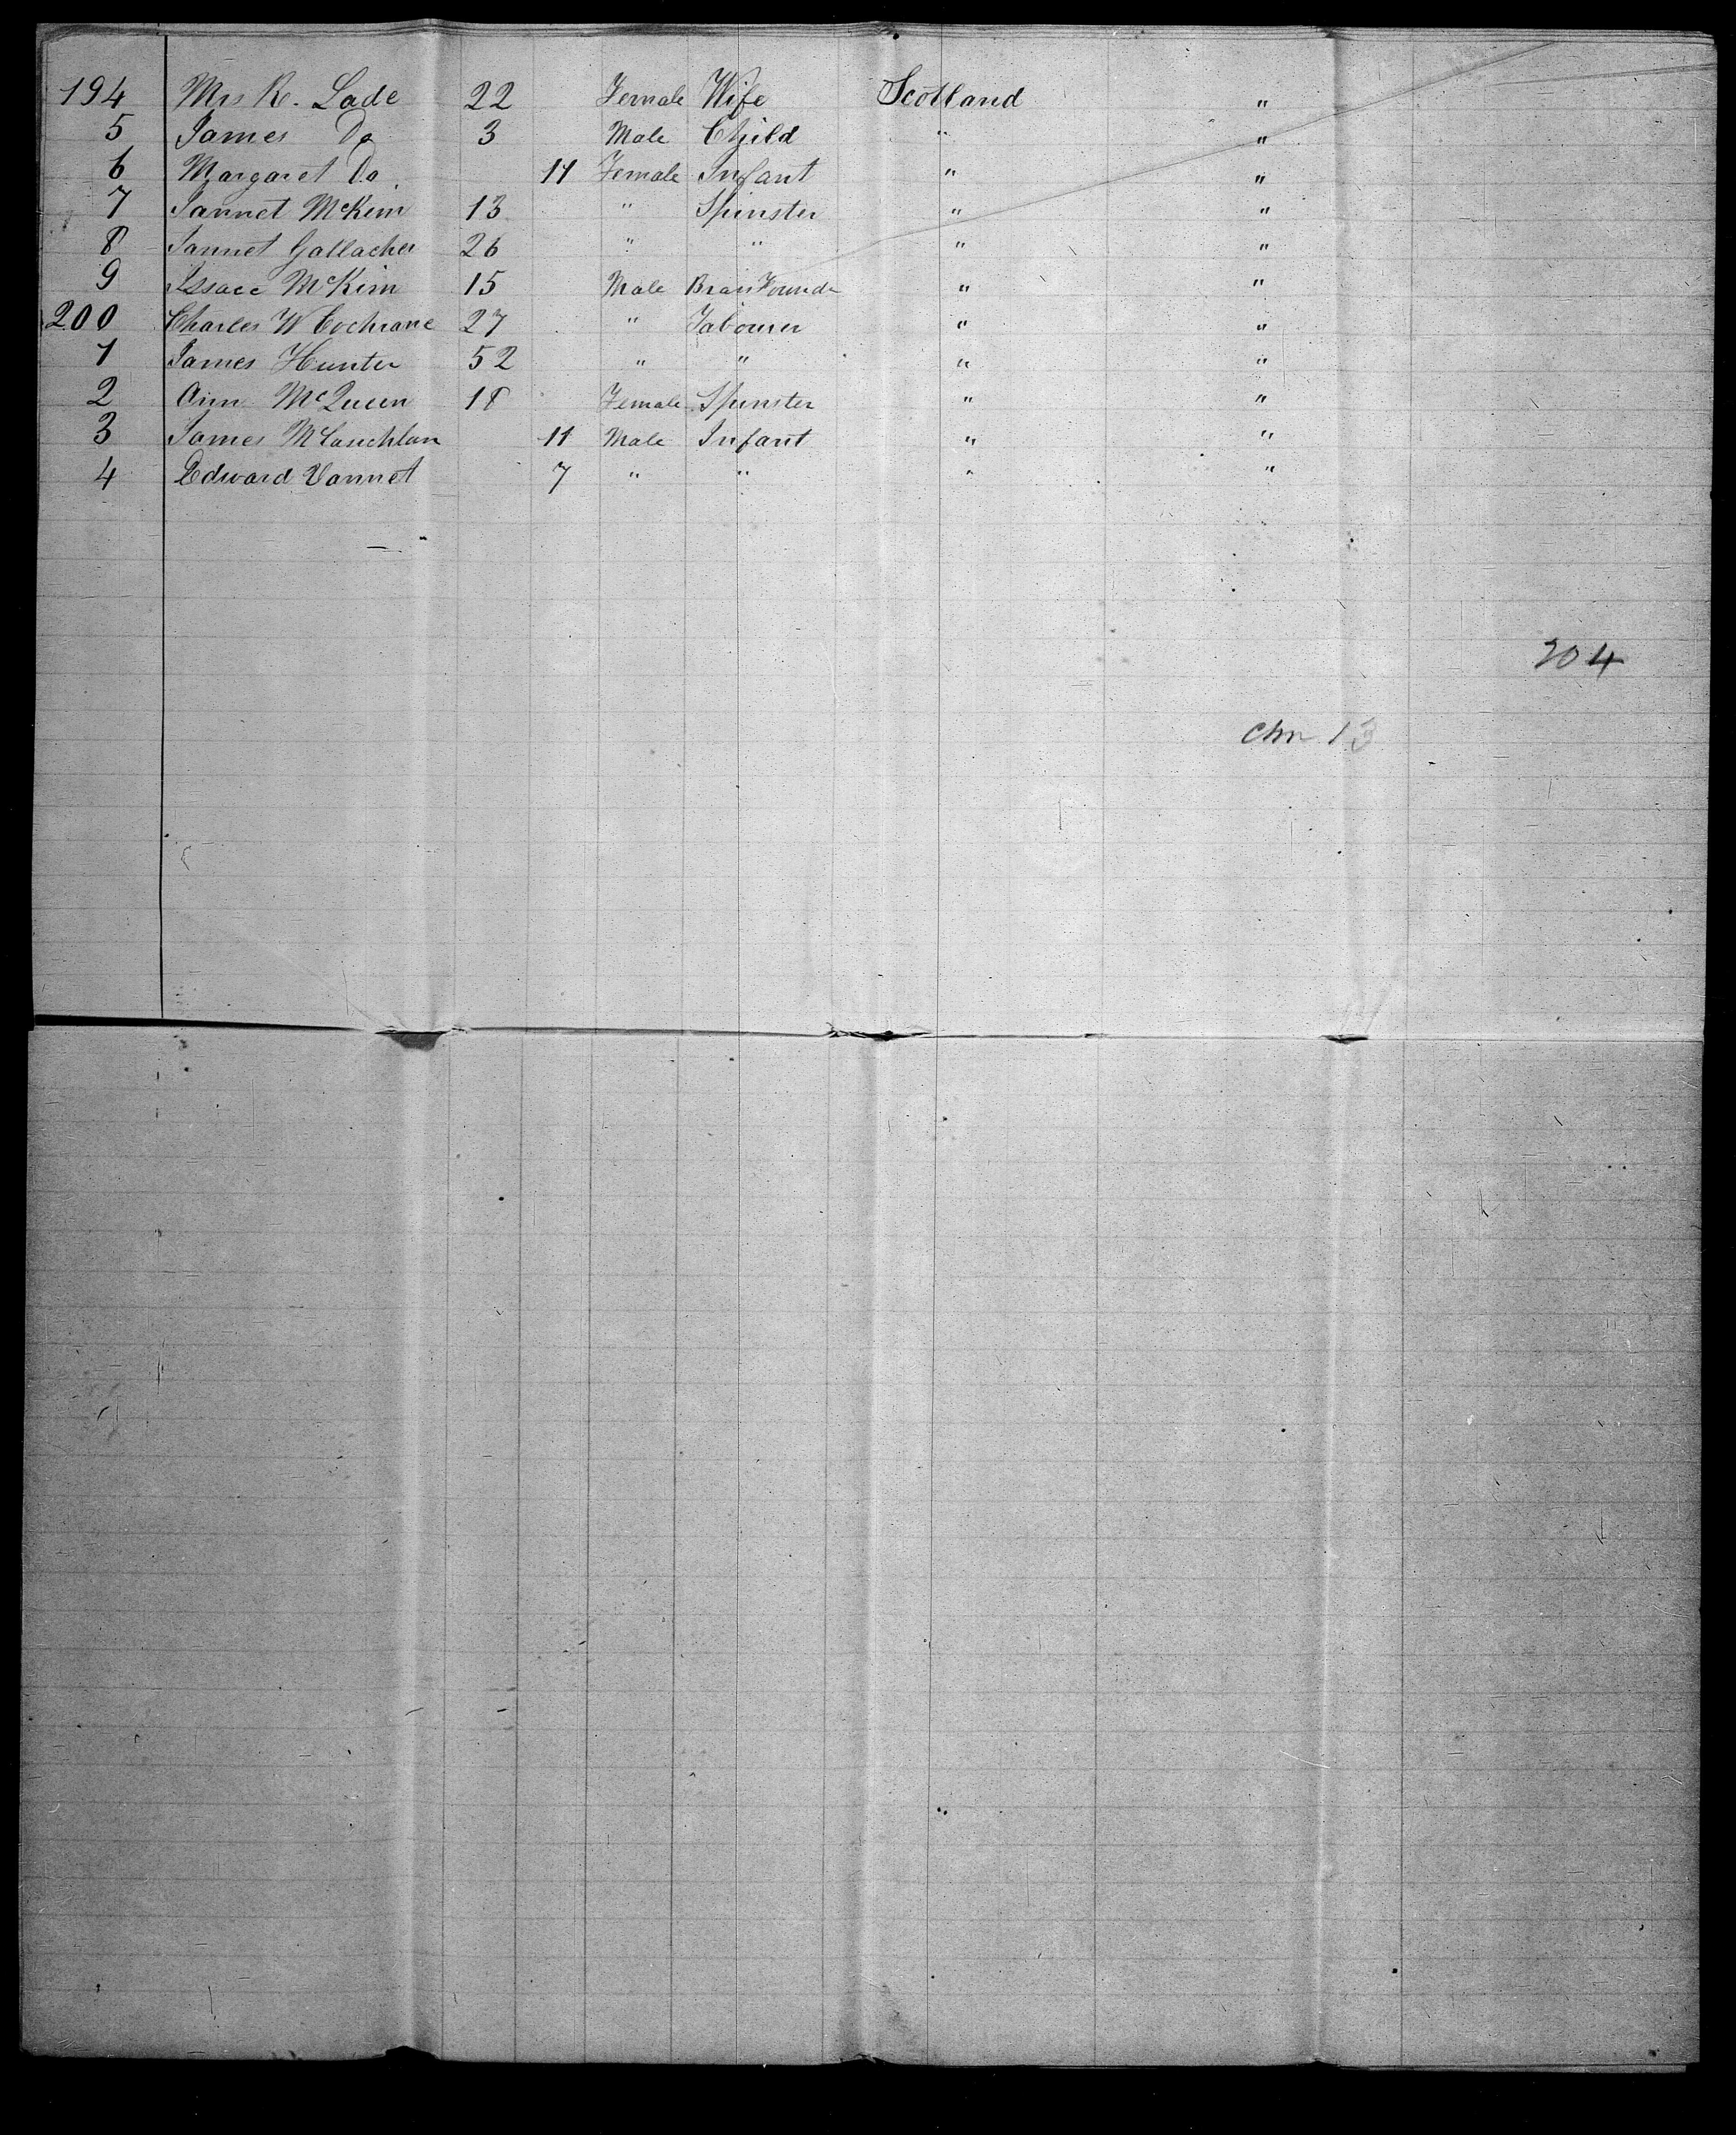 194 Mrs R. Lade 22 Female Wife Scotland "
5 James Do 3 Male Child " "
6 Margaret Do 11 Female Infant " "
7 Jannet McKim 13 " Spinster " "
8 Jannet Gallacher 26 " " " "
9 Issace McKim 15 Male Brass Founder " "
200 Charles W Cochrane 27 " Labourer " "
1 James Hunter 52 " " " "
2 Ann McQueen 18 Female Spinster " "
3 James McLauchlan 11 Male Infant " "
4 Edward Vannet 7 " " " "
204
Chn 13